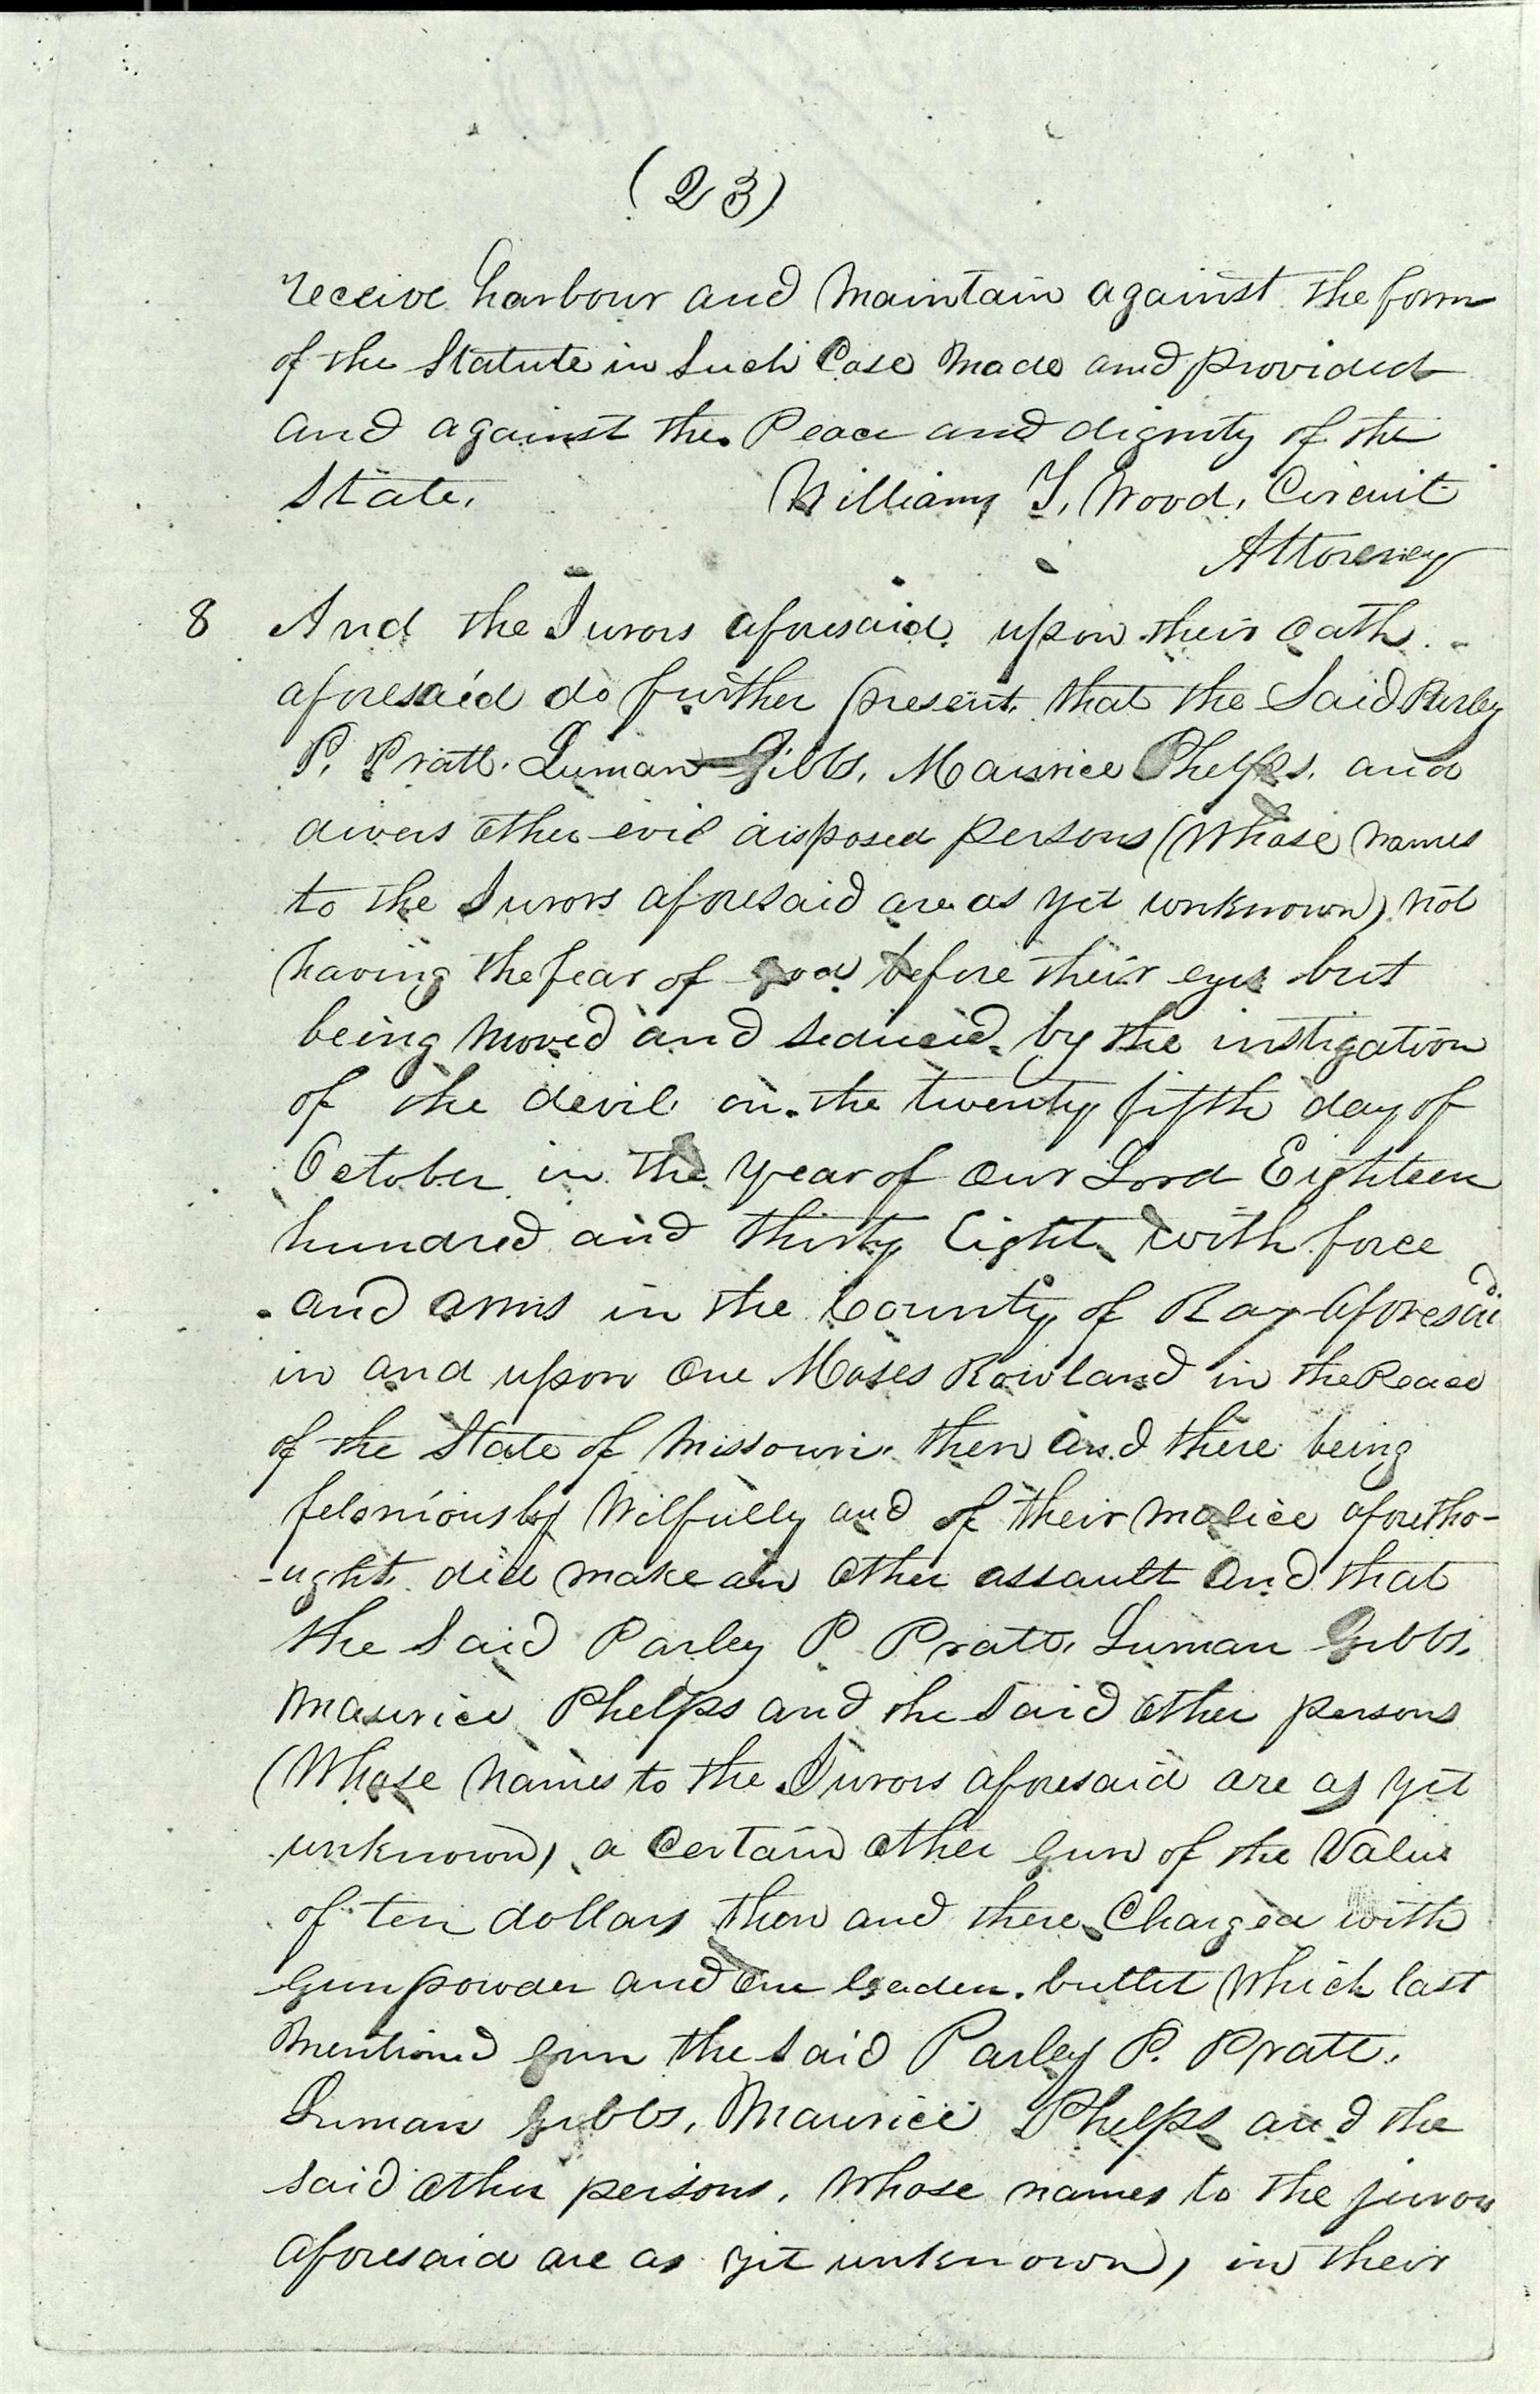 (23)
receive harbour and maintain against the form
of the Statute in Such Case made and provided
and against the Peace and dignity of the
State. William T. Wood. Circuit
Attorney
8 And the Jurors aforesaid upon their oath
aforesaid do further present that the Said Parley
P. Pratt. Luman Gibbs. Maurice Phelps. and
divers other evil disposed persons (Whose names
to the Jurors aforesaid are as yet unknown) not
having the fear of god before their eyes but
being moved and seduced by the instigation
of the devil on the twenty fifth day of
October in the year of our Lord Eighteen
hundred and thirty Eight with force
and arms in the County of Ray aforesaid
in and upon one Moses Rowland in the Peace
of the State of Missouri then and there being
feloniously Wilfully and of their malice aforetho-
-ught did make an other assault and that
the Said Parley P Pratt. Luman Gibbs.
Maurice Phelps and the Said other persons
(Whose names to the Jurors aforesaid are as yet
unknown) a certain other gun of the Value
of ten dollars then and there Charged with
Gunpowder and one leaden bullet which last
mentioned gun the Said Parley P. Pratt.
Luman Gibbs, Maurice Phelps and the
said other persons. whose names to the jurors
aforesaid are as yet unknown) in their